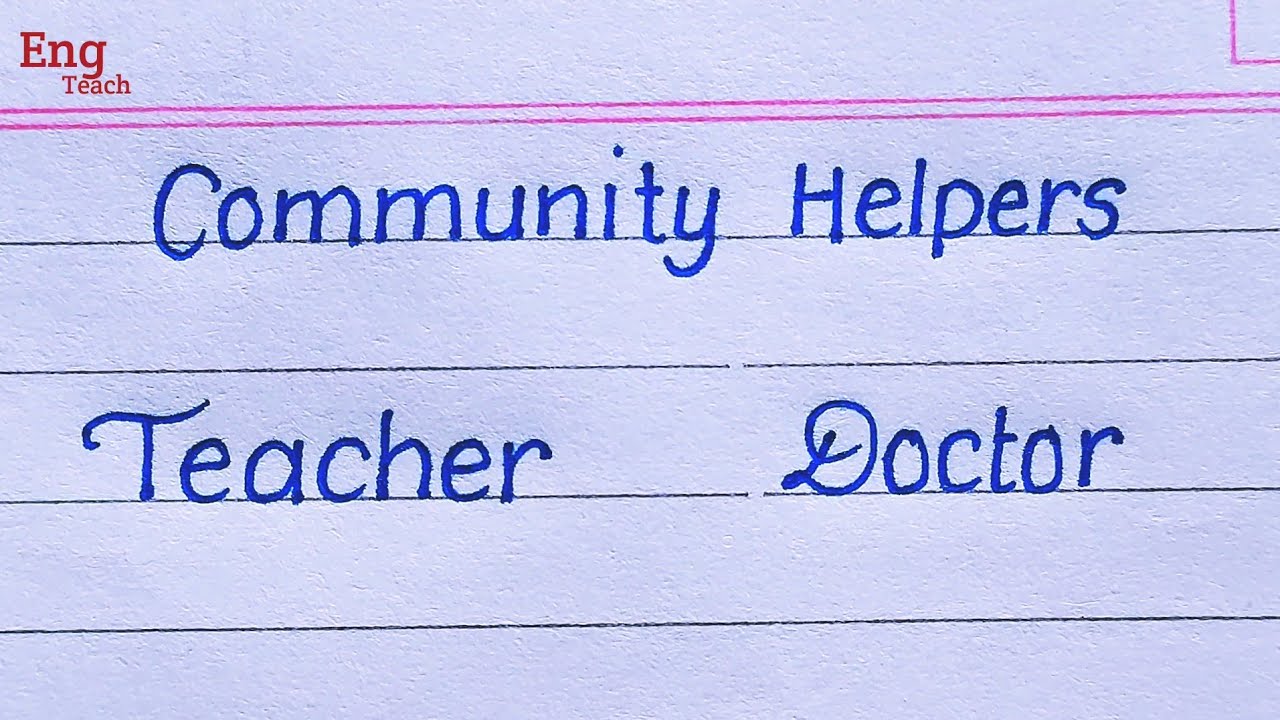 Eng
Teach
Community Helpers
Teacher Doctor